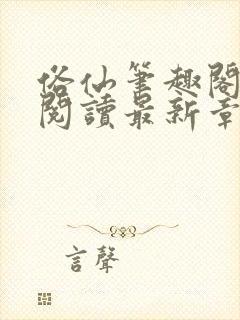 俗仙筆趣閣
閱讀最新章
言聲